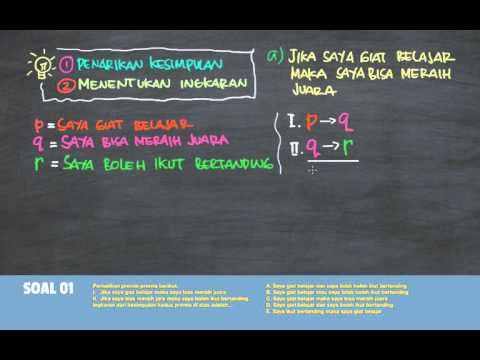 ① PENARIKAN KESIMPULAN
② MENENTUKAN INGKARAN
a) JIKA SAYA GIAT BELAJAR
MAKA SAYA BISA MERAIH
JUARA
p = SAYA GIAT BELAJAR
q = SAYA BISA MERAIH JUARA
r = SAYA BOLEH IKUT BERTANDING
I. p → q
II. q → r
SOAL 01
Perhatikan premis-premis berikut.
I. Jika saya giat belajar maka saya bisa meraih juara
II. Jika saya bisa meraih juara maka saya boleh ikut bertanding
Ingkaran dari kesimpulan kedua premis di atas adalah...
A. Saya giat belajar dan saya tidak boleh ikut bertanding
B. Saya giat belajar atau saya tidak boleh ikut bertanding
C. Saya giat belajar maka saya bisa meraih juara
D. Saya giat belajar dan saya boleh ikut bertanding
E. Saya ikut bertanding maka saya giat belajar